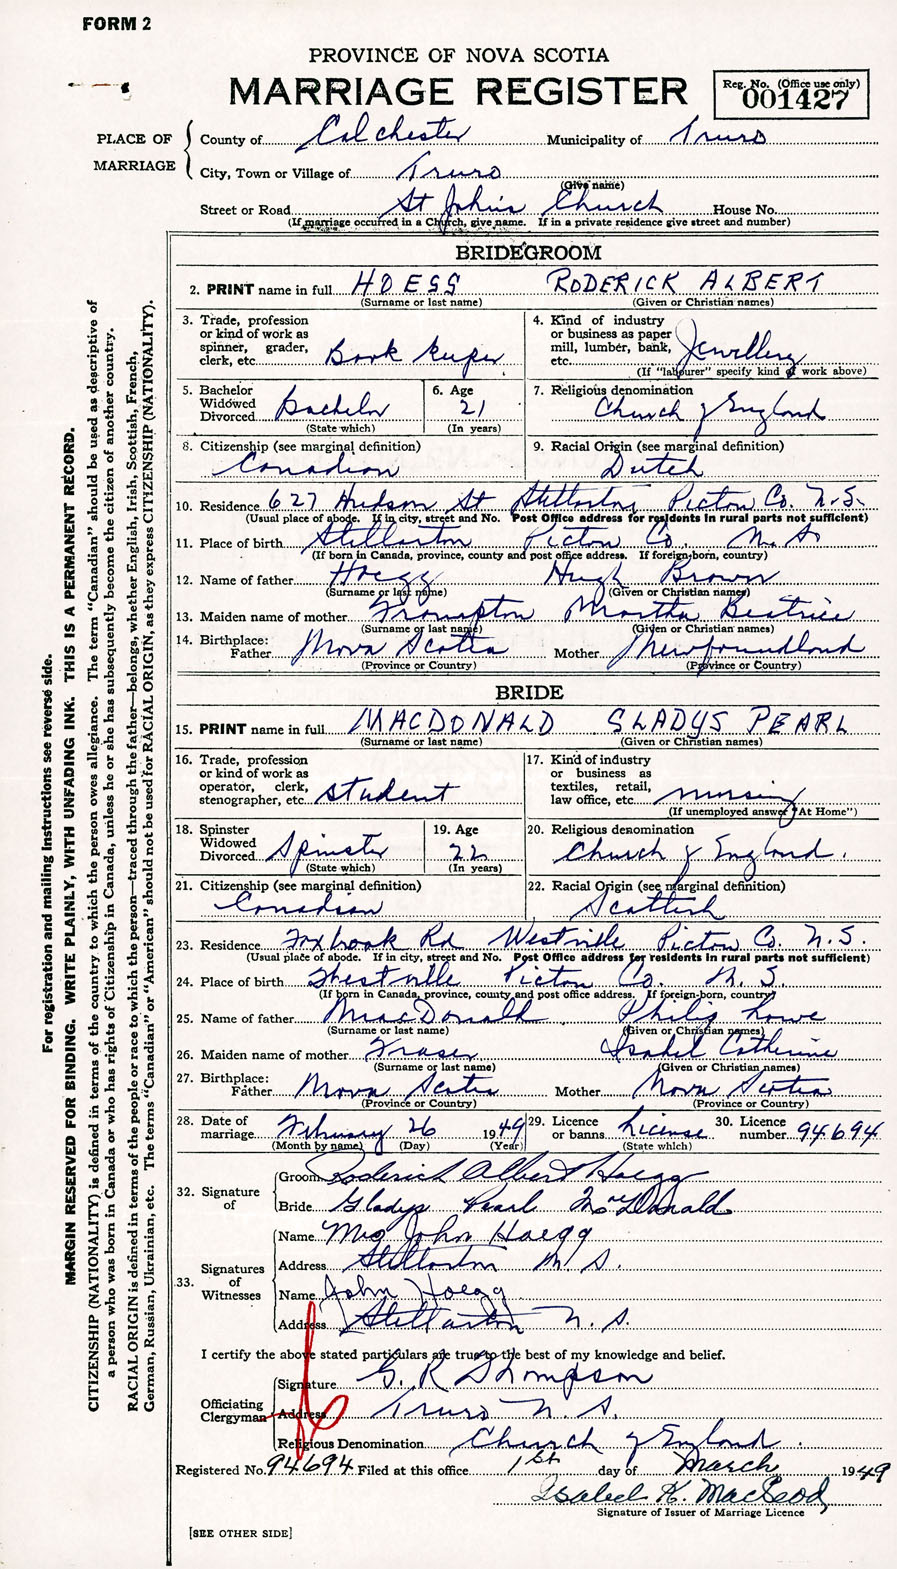 FORM 2
PROVINCE OF NOVA SCOTIA
MARRIAGE REGISTER
Reg. No. (Office use only)
001427
PLACE OF MARRIAGE
County of Colchester Municipality of Truro
City, Town or Village of Truro
(Give name)
Street or Road St John's Church House No.
(If marriage occurred in a Church, give name. If in a private residence give street and number)
BRIDEGROOM
2. PRINT name in full HOEGG RODERICK ALBERT
(Surname or last name) (Given or Christian names)
3. Trade, profession or kind of work as spinner, grader, clerk, etc. Book keeper
4. Kind of industry or business as paper mill, lumber, bank, etc. Jewellery
(If "labourer" specify kind of work above)
5. Bachelor Widowed Divorced Bachelor
(State which)
6. Age 21
(In years)
7. Religious denomination
Church of England
8. Citizenship (see marginal definition)
Canadian
9. Racial Origin (see marginal definition)
Dutch
10. Residence 627 Hudson St Stellarton Pictou Co. N.S.
(Usual place of abode. If in city, street and No. Post Office address for residents in rural parts not sufficient)
11. Place of birth Stellarton Pictou Co. N. S.
(If born in Canada, province, county and post office address. If foreign-born, country)
12. Name of father Hoegg Hugh Brown
(Surname or last name) (Given or Christian names)
13. Maiden name of mother Frampton Martha Beatrice
(Surname or last name) (Given or Christian names)
14. Birthplace:
Father Nova Scotia Mother Newfoundland
(Province or Country) (Province or Country)
BRIDE
15. PRINT name in full MACDONALD GLADYS PEARL
(Surname or last name) (Given or Christian names)
16. Trade, profession or kind of work as operator, clerk, stenographer, etc. student
17. Kind of industry or business as textiles, retail, law office, etc. nursing
(If unemployed answer "At Home")
18. Spinster Widowed Divorced Spinster
(State which)
19. Age 22
(In years)
20. Religious denomination
Church of England.
21. Citizenship (see marginal definition)
Canadian
22. Racial Origin (see marginal definition)
Scottish
23. Residence Foxbrook Rd Westville Pictou Co. N.S.
(Usual place of abode. If in city, street and No. Post Office address for residents in rural parts not sufficient)
24. Place of birth Westville Pictou Co. N. S.
(If born in Canada, province, county and post office address. If foreign-born, country)
25. Name of father MacDonald Philip Lowe
(Surname or last name) (Given or Christian names)
26. Maiden name of mother Fraser Isabel Catherine
(Surname or last name) (Given or Christian names)
27. Birthplace:
Father Nova Scotia Mother Nova Scotia
(Province or Country) (Province or Country)
28. Date of marriage February 26 1949
(Month by name) (Day) (Year)
29. Licence or banns License
(State which)
30. Licence number 94694
32. Signature of
Groom Roderick Albert Hoegg
Bride Gladys Pearl McDonald
33. Signatures of Witnesses
Name Mrs John Hoegg
Address Stellarton N. S.
Name John Hoegg
Address Stellarton N. S.
I certify the above stated particulars are true to the best of my knowledge and belief.
Officiating Clergyman
Signature G. R Thompson
Address Truro N. S.
Religious Denomination Church of England.
Registered No. 94694 Filed at this office 1st day of March 1949
Isabel K. MacLeod
Signature of Issuer of Marriage Licence
[SEE OTHER SIDE]
For registration and mailing instructions see reverse side.
MARGIN RESERVED FOR BINDING. WRITE PLAINLY, WITH UNFADING INK. THIS IS A PERMANENT RECORD.
CITIZENSHIP (NATIONALITY) is defined in terms of the country to which the person owes allegiance. The term "Canadian" should be used as descriptive of
a person who was born in Canada or who has rights of Citizenship in Canada, unless he or she has subsequently become the citizen of another country.
RACIAL ORIGIN is defined in terms of the people or race to which the person—traced through the father—belongs, whether English, Irish, Scottish, French,
German, Russian, Ukrainian, etc. The terms "Canadian" or "American" should not be used for RACIAL ORIGIN, as they express CITIZENSHIP (NATIONALITY).